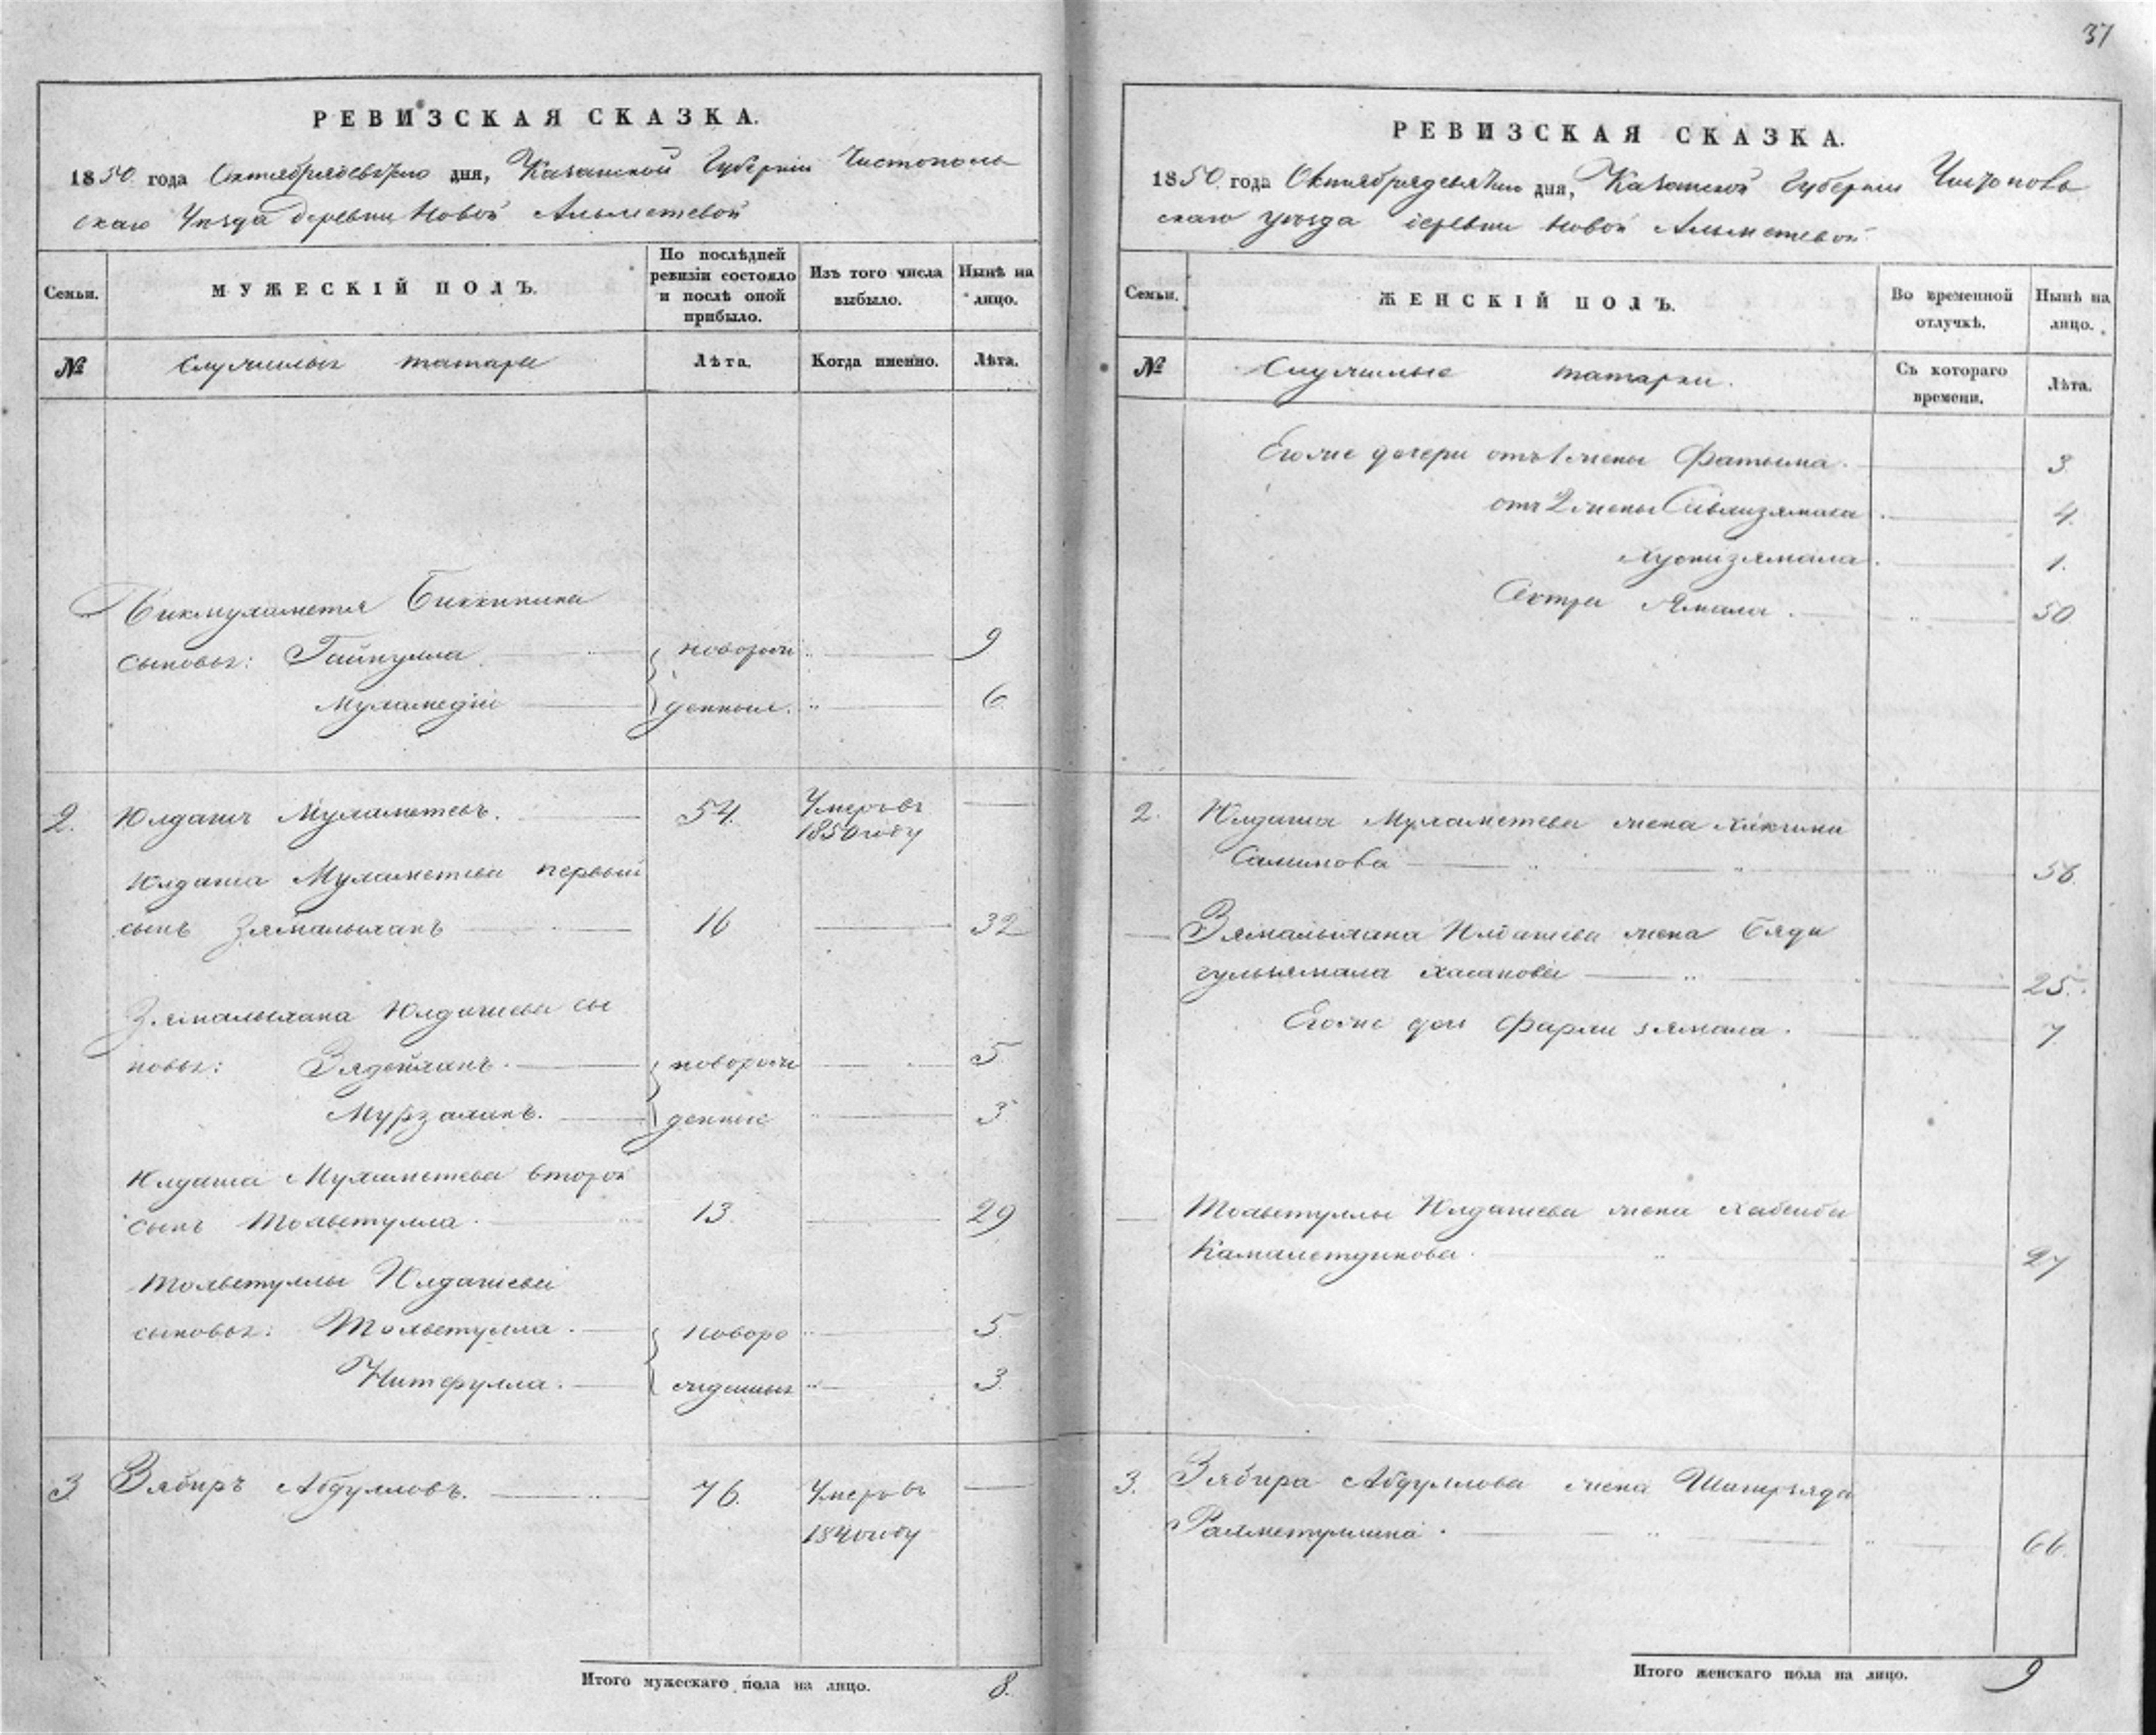 37
РЕВИЗСКАЯ СКАЗКА.
1850 года Октября девятого дня, Казанской Губерніи Чистополь
скаго Уѣзда деревни Новой Альметевой
Семьи.
МУЖЕСКІЙ ПОЛЪ.
По послѣдней ревизіи состояло и послѣ оной прибыло.
Изъ того числа выбыло.
Нынѣ на лицо.
№
Служилыя татары
Лѣта.
Когда именно.
Лѣта.
Бикмухаметя Биккинина
сыновья: Гайнулла новорож 9
Мухамедій денныя. 6
2. Юлдашъ Мухаметевъ. 54. Умеръ въ
1850 году
Юлдаша Мухаметева первый
сынъ Зямалыханъ 16 32
Зямалыхана Юлдашева сы
новья: Зядейханъ. новорож 5
Мурзаханъ. денные 3
Юлдаша Мухаметева второй
сынъ Тохветулла 13. 29
Тохветуллы Юлдашева
сыновья: Тохветулла. новоро 5
жденныя 3
3 Зябиръ Абдулловъ. 76. Умеръ въ
1840 году
Итого мужескаго пола на лицо. 8.
РЕВИЗСКАЯ СКАЗКА.
1850 года Октября девятого дня, Казанской Губерніи Чистополь
скаго уѣзда деревни Новой Альметевой
Семьи.
ЖЕНСКІЙ ПОЛЪ.
Во временной отлучкѣ.
Нынѣ на лицо.
№
Служилые татарки.
Съ котораго времени.
Лѣта.
Его же дочери отъ 1 жены Фатыма. 3
отъ 2 жены 4.
Хуснизямала. 1.
Сестра Ямала. 50
2. Юлдаша Мухаметева жена
Салимова 56.
Зямалыхана Юлдашева жена Бяди
гульзямала Хасанова 25.
Его же дочь зямала. 7
Тохветуллы Юлдашева жена Хабеиба
Камалетдинова. 27
3. Зябира Абдуллова жена
Рахметуллина. 66.
Итого женскаго пола на лицо. 9